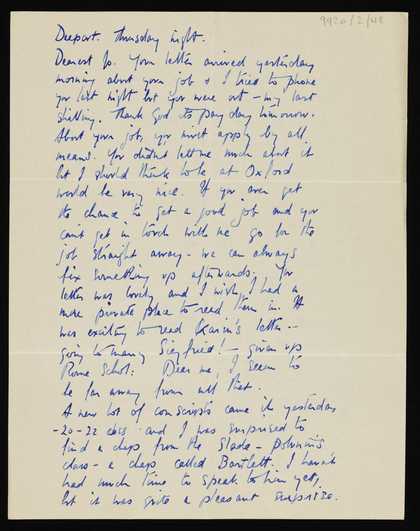 9920/2/48
Deepcut. Thursday night.
Dearest Jo. Your letter arrived yesterday
morning about your job & I tried to phone
you last night but you were out – my last
shilling. Thank God it's pay day tomorrow.
About your job, you must apply by all
means. You didn't tell me much about it
but I should think to be at Oxford
would be very nice. If you ever get
the chance to get a good job and you
can't get in touch with me go for the
job straight away – we can always
fix something up afterwards. Your
letter was lovely and I wish I had a
more private place to read them in. It
was exciting to read Karin's letter –
going to marry Siegfried! – given up
Rome Schol: Dear me, I seem to
be far away from all that.
A new lot of conscripts came in yesterday
-20-22 and I was surprised to
find a chap from the Slade – Polunin's
class – a chap called Bartlett. I haven't
had much time to speak to him yet,
but it was quite a pleasant surprise.